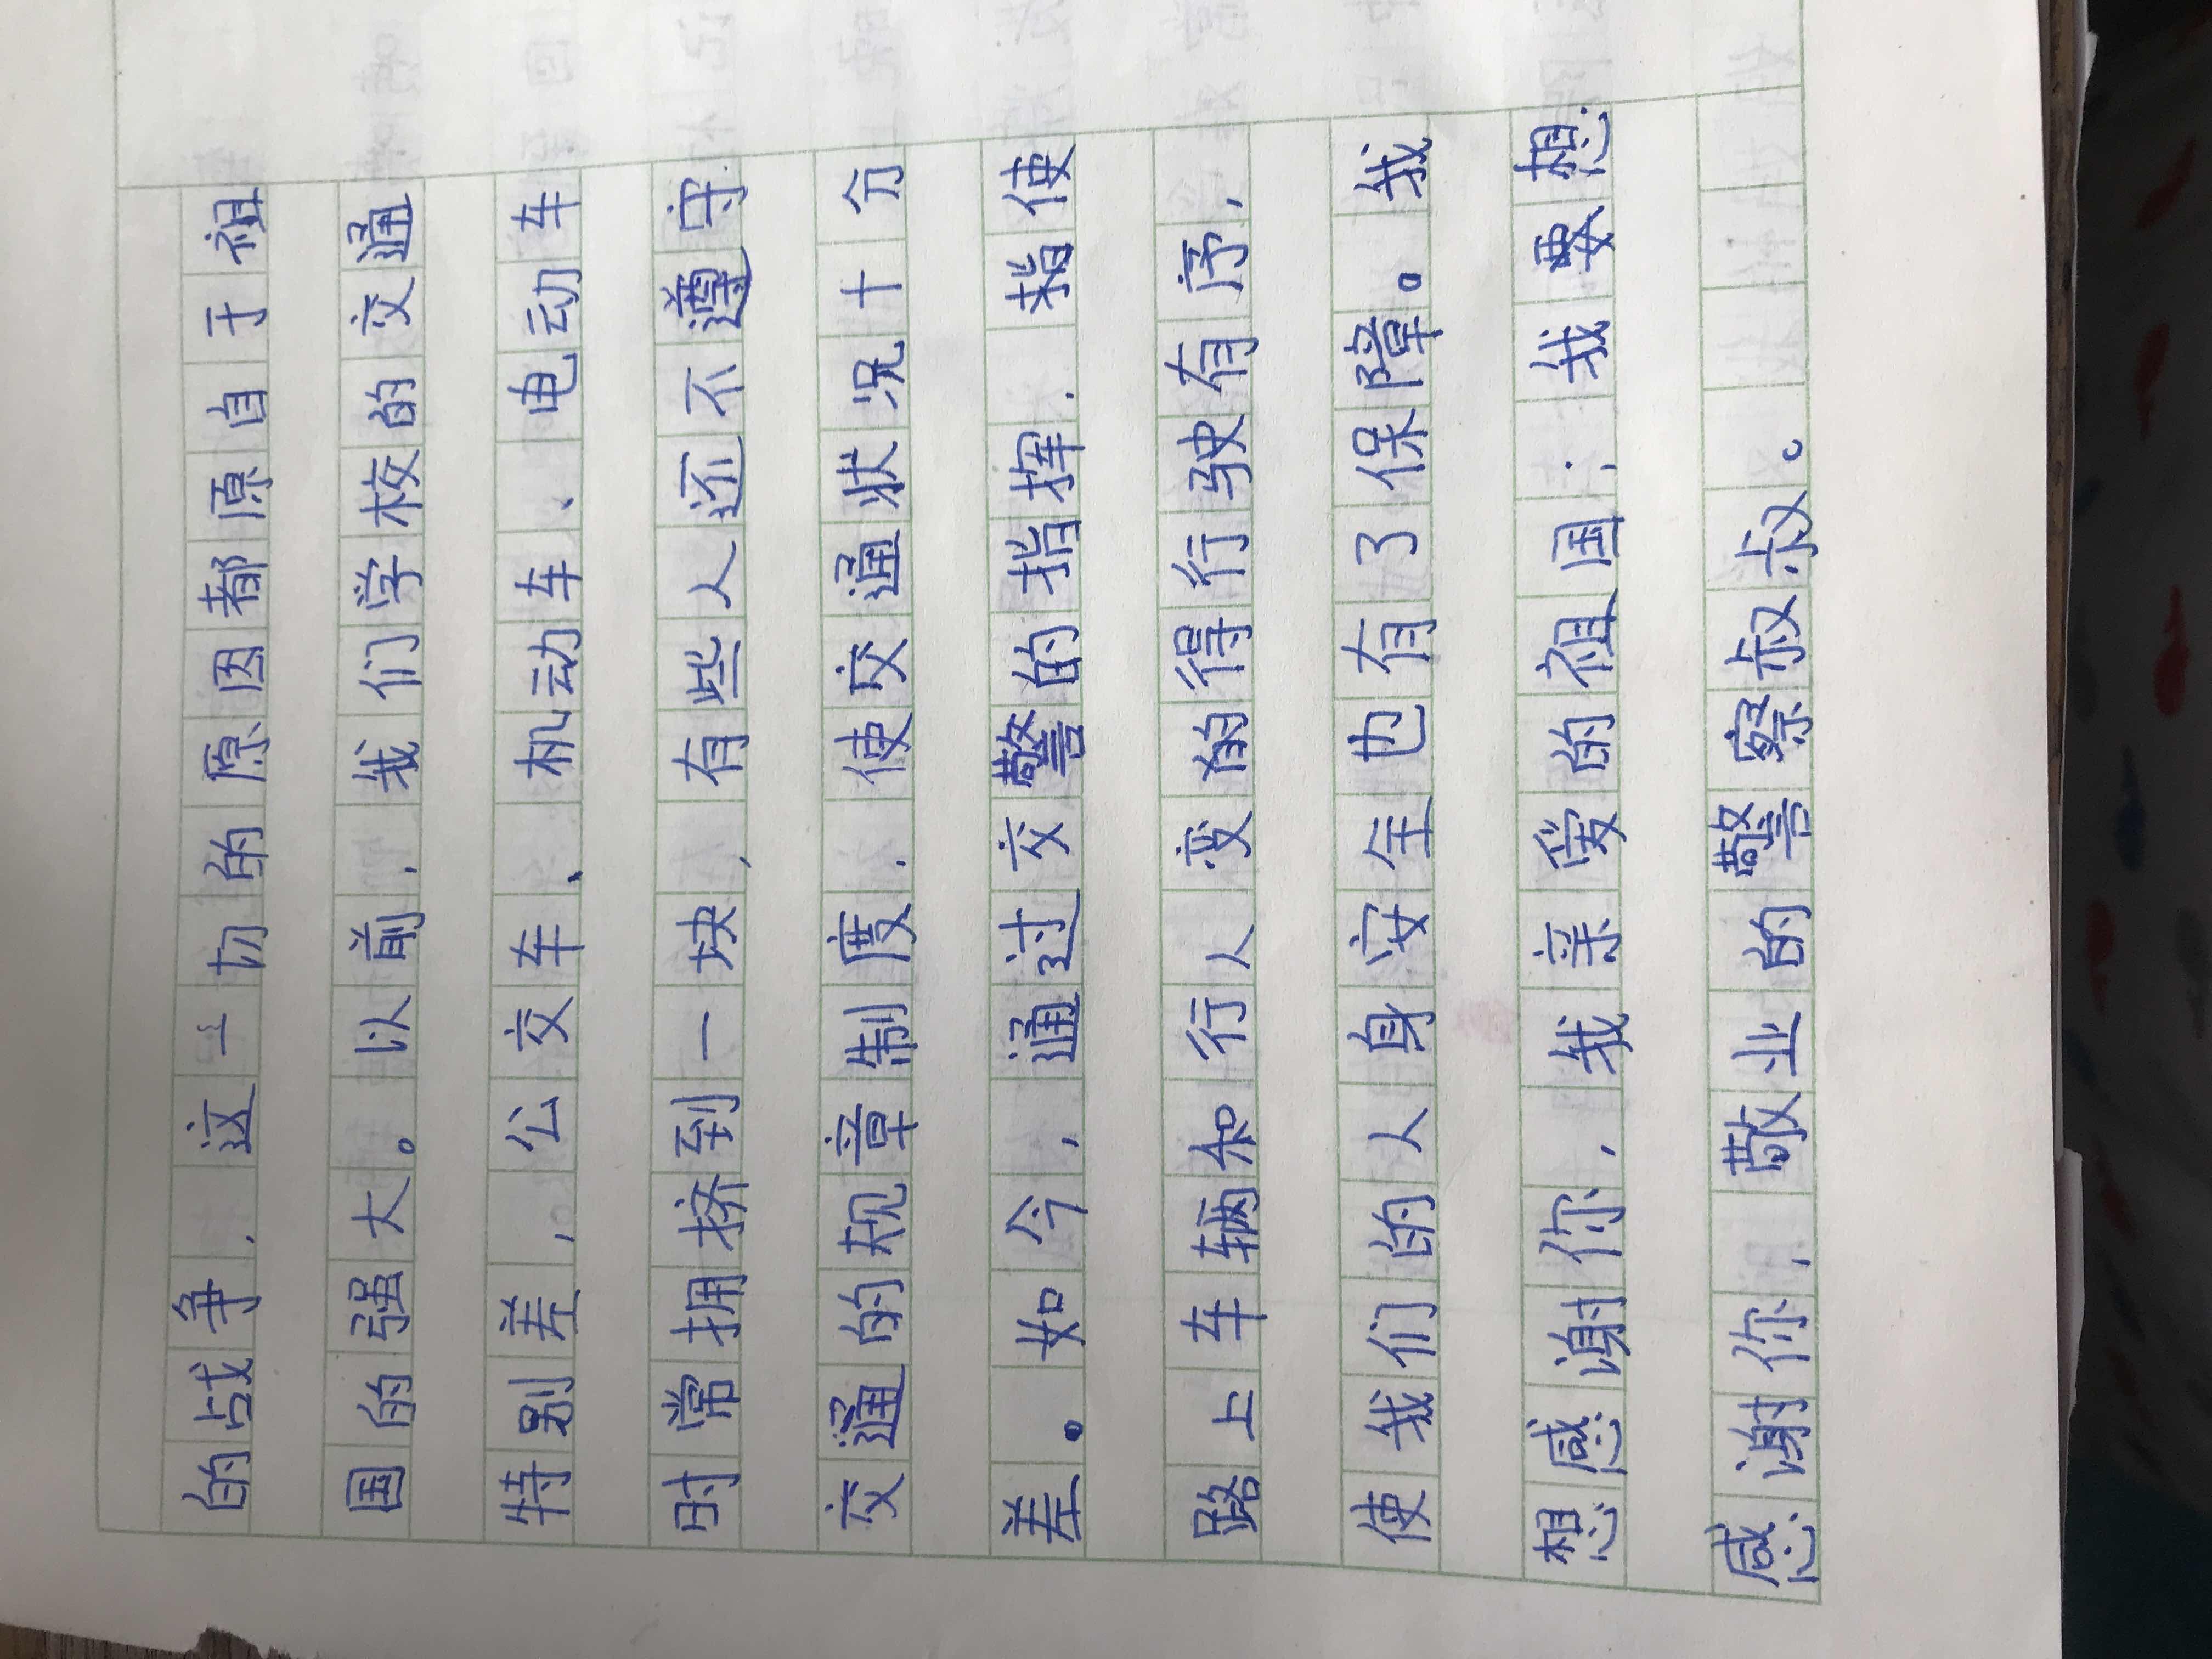 的战争，这一切的原因都原自于祖
国的强大。以前，我们学校的交通
特别差，公交车、机动车、电动车
时常拥挤到一块，有些人还不遵守
交通的规章制度，使交通状况十分
差。如今，通过交警的指挥，指使
路上车辆和行人变的得行驶有序，
使我们的人身安全也有了保障。我
想感谢你，我亲爱的祖国；我要想
感谢你，敬业的警察叔叔。